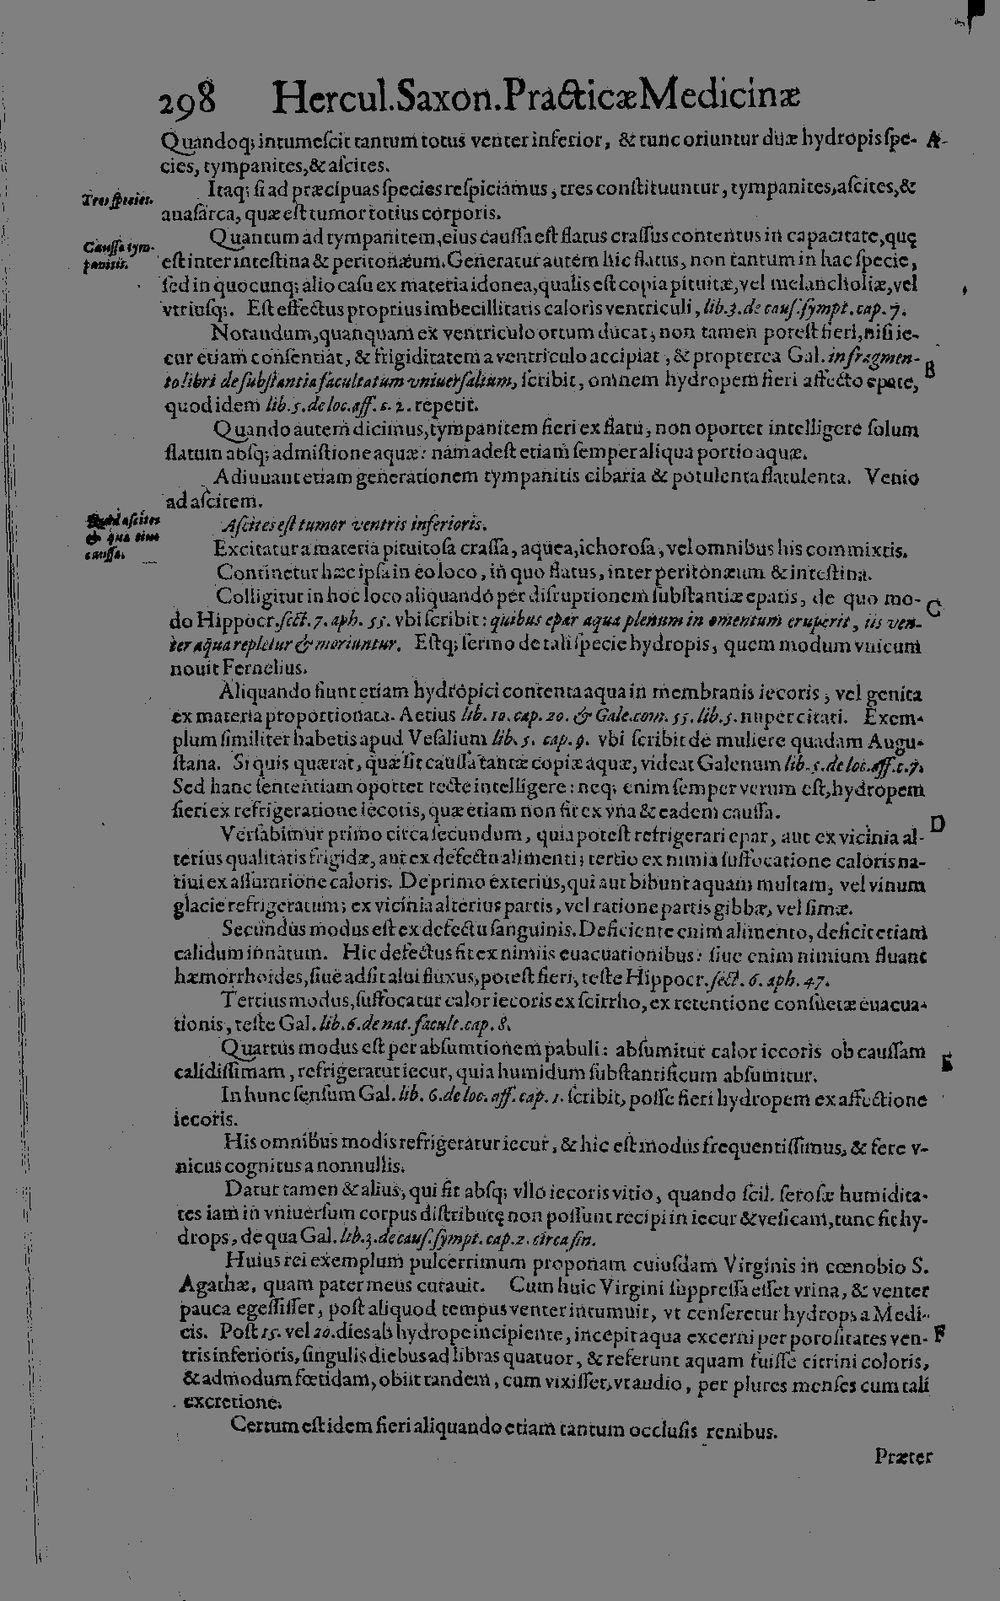 298 Hercul.Saxon.Practicæ Medicinæ
Quandoq; intumeſcit tantum totus venter inferior, & tunc oriuntur duæ hydropis ſpe- A
cies, tympanites, & aſcites.
Itaq; ſi ad præcipuas ſpecies reſpiciamus, tres conſtituuntur, tympanites, aſcites, &
Tres ſpecies.
anaſarca, quæ eſt tumor totius corporis.
Quantum ad tympanitem, eius cauſſa eſt flatus craſſus contentus in capacitate, quę
Cauſſa tym-
panitis.
eſt inter inteſtina & peritonæum. Generatur autem hic flatus, non tantum in hac ſpecie,
ſed in quocunq; alio caſu ex materia idonea, qualis eſt copia pituitæ, vel melancholiæ, vel
vtriuſq;. Eſt effectus proprius imbecillitatis caloris ventriculi, lib.3. de cauſ. ſympt. cap. 7.
Notandum, quanquam ex ventriculo ortum ducat, non tamen poteſt fieri, niſi ie-
cur etiam conſentiat, & frigiditatem a ventriculo accipiat, & propterea Gal. in fragmen-
B
to libri de ſubſtantia facultatum vniuerſalium, ſcribit, omnem hydropem fieri affecto epate,
quod idem lib. 5. de loc. aff. c. 2. repetit.
Quando autem dicimus, tympanitem fieri ex flatu, non oportet intelligere ſolum
flatum abſq; admiſtione aquæ: nam adeſt etiam ſemper aliqua portio aquæ.
Adiuuant etiam generationem tympanitis cibaria & potulenta flatulenta. Venio
ad aſcitem.
Quid aſcites
& quæ eius
cauſſa.
Aſcites eſt tumor ventris inferioris.
Excitatur a materia pituitoſa craſſa, aquea, ichoroſa, vel omnibus his commixtis.
Continetur hæc ipſa in eo loco, in quo flatus, inter peritonæum & inteſtina.
Colligitur in hoc loco aliquando per diſruptionem ſubſtantiæ epatis, de quo mo- C
do Hippocr. ſect. 7. aph. 55. vbi ſcribit: quibus epar aqua plenum in omentum eruperit, iis ven-
ter aqua repletur & moriuntur. Eſtq; ſermo de tali ſpecie hydropis, quem modum vnicum
nouit Fernelius.
Aliquando fiunt etiam hydropici contenta aqua in membranis iecoris, vel genita
ex materia proportionata. Aetius lib. 10. cap. 20. & Gale. com. 55. lib. 5. nuper citati. Exem-
plum ſimiliter habetis apud Veſalium lib. 5. cap. 9. vbi ſcribit de muliere quadam Augu-
ſtana. Si quis quærat, quæ ſit cauſſa tantæ copiæ aquæ, videat Galenum lib. 5. de loc. aff. c. 7.
Sed hanc ſententiam oportet recte intelligere: neq; enim ſemper verum eſt, hydropem
fieri ex refrigeratione iecoris, quæ etiam non fit ex vna & eadem cauſſa.
D
Verſabimur primo circa ſecundum, quia poteſt refrigerari epar, aut ex vicinia al-
terius qualitatis frigidæ, aut ex defectu alimenti; tertio ex nimia ſuffocatione caloris na-
tiui ex aſſuratione caloris. De primo exterius, qui aut bibunt aquam multam, vel vinum
glacie refrigeratum; ex vicinia alterius partis, vel ratione partis gibbæ, vel ſimæ.
Secundus modus eſt ex defectu ſanguinis. Deficiente enim alimento, deficit etiam
calidum innatum. Hic defectus fit ex nimiis euacuationibus: ſiue enim nimium fluant
hæmorrhoides, ſiue adſit alui fluxus, poteſt fieri, teſte Hippocr. ſect. 6. aph. 47.
Tertius modus, ſuffocatur calor iecoris ex ſcirrho, ex retentione conſuetæ euacua-
tionis, teſte Gal. lib. 6. de nat. facult. cap. 8.
Quartus modus eſt per abſumtionem pabuli: abſumitur calor iecoris ob cauſſam
E
calidiſſimam, refrigeratur iecur, quia humidum ſubſtantificum abſumitur.
In hunc ſenſum Gal. lib. 6. de loc. aff. cap. 1. ſcribit, poſſe fieri hydropem ex affectione
iecoris.
His omnibus modis refrigeratur iecur, & hic eſt modus frequentiſſimus, & fere v-
nicus cognitus a nonnullis.
Datur tamen & alius, qui fit abſq; vllo iecoris vitio, quando ſcil. ſeroſæ humidita-
tes iam in vniuerſum corpus diſtributę non poſſunt recipi in iecur & veſicam, tunc fit hy-
drops, de qua Gal. lib. 3. de cauſ. ſympt. cap. 2. circa fin.
Huius rei exemplum pulcerrimum proponam cuiuſdam Virginis in cœnobio S.
Agathæ, quam pater meus curauit. Cum huic Virgini ſuppreſſa eſſet vrina, & venter
pauca egeſſiſſet, poſt aliquod tempus venter intumuit, vt cenſeretur hydrops a Medi-
cis. Poſt 15. vel 20. dies ab hydrope incipiente, incepit aqua excerni per poroſitates ven- F
tris inferioris, ſingulis diebus ad libras quatuor, & referunt aquam fuiſſe citrini coloris,
& admodum fœtidam, obiit tandem, cum vixiſſet, vt audio, per plures menſes cum tali
excretione.
Certum eſt idem fieri aliquando etiam tantum occluſis renibus.
Præter